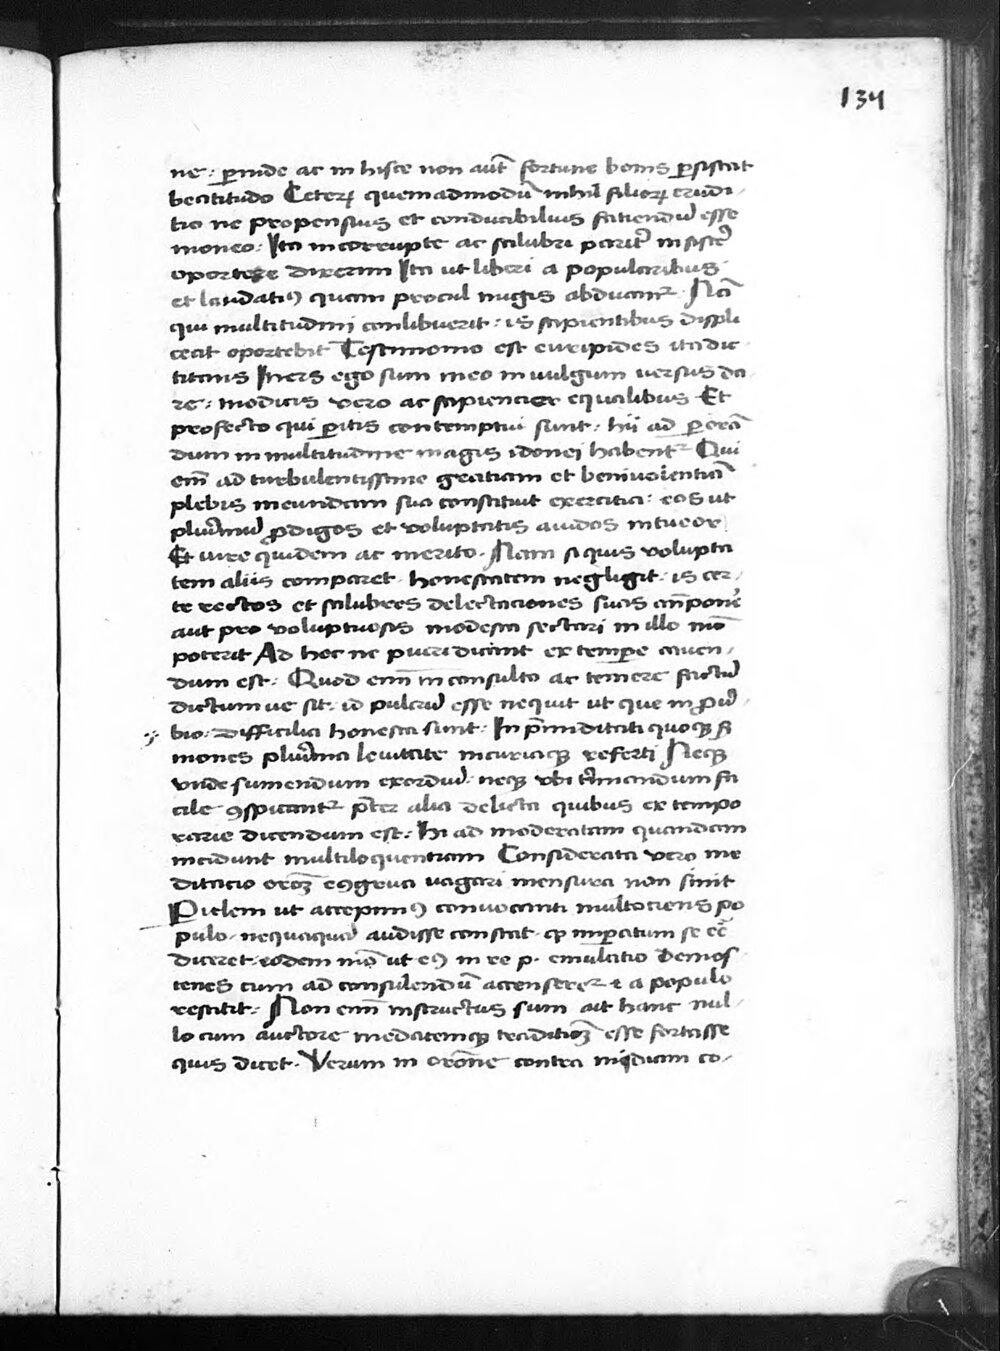 134
ne: ꝑinde ac in hisce non aūt fortune bonis ꝑsistat
beatitudo Ceterꝝ quemadmodū nihil filiorꝝ erudi-
tio ne propensius et conducibilius fatiendū esse
moneo: Ita incorrupte ac salubri parit᷑ insiste᷑
oportere dixerim Ita ut liberi a popularibus
et laudatꝰ quam procul nugis abducant᷑. Nā
qui multitudini conlibuerit: is sapientibus displi
ceat oportebit Testimonio est euripides ita dic-
titans Iners ego sum meo in uulgum uersus da-
re: modicis vero ac sapiencior equalibus Et
profecto qui ꝑitis contemptui sunt: hii ad ꝑorā
dum in multitudine magis idonei habent᷑ Qui
em̄ ad turbulentissime gratiam et beniuolentiā
plebis ineundam sua constituit exercitia: eos ut
plurimū ꝓdigos et voluptatis auidos intueor
Et iure quidem ac merito. Nam si quis volupta
tem aliis comparet. honestatem negligit. is cer-
te rectos et salubres delectaciones suas an̄pone᷑
aut pro voluptuosis modesta sectari in illo mō
poterit Ad hec ne pueri dicant ex tempe cauen-
dum est. Quod em̄ inconsulto ac temere factū
dictum ue sit. id pulcrū esse nequit ut que in ꝓuer
bio: difficilia honesta sunt. In p̄meditati quoqꝫ s̄
mones plurima leuitate incuriaqꝫ referti Neqꝫ
vnde sumendum exordiū. neqꝫ vbi t᷑minandum fa
cile ꝯspicant᷑ p̄ter alia delicta quibus ex tempo
rarie dicendum est: Hi ad moderatam quandam
incidunt multiloquentiam Considerata vero me
ditacio orōꝫ ꝯgrua uagari mensura non sinit
Piclem ut accepimꝰ conuocanti multociens po
pulo. nequaquā audisse constat. ꝙ impatum se eē
diceret. eodem mō ut eꝰ in re p. emulatio Demos-
tenes cum ad consulendū accenseret᷑ a populo
restitit: Non em̄ instructus sum ait hanc nul-
lo cum auctore medatemqꝫ traditiōꝫ esse fortasse
quis dicet. Verum in orōne contra midiam co-